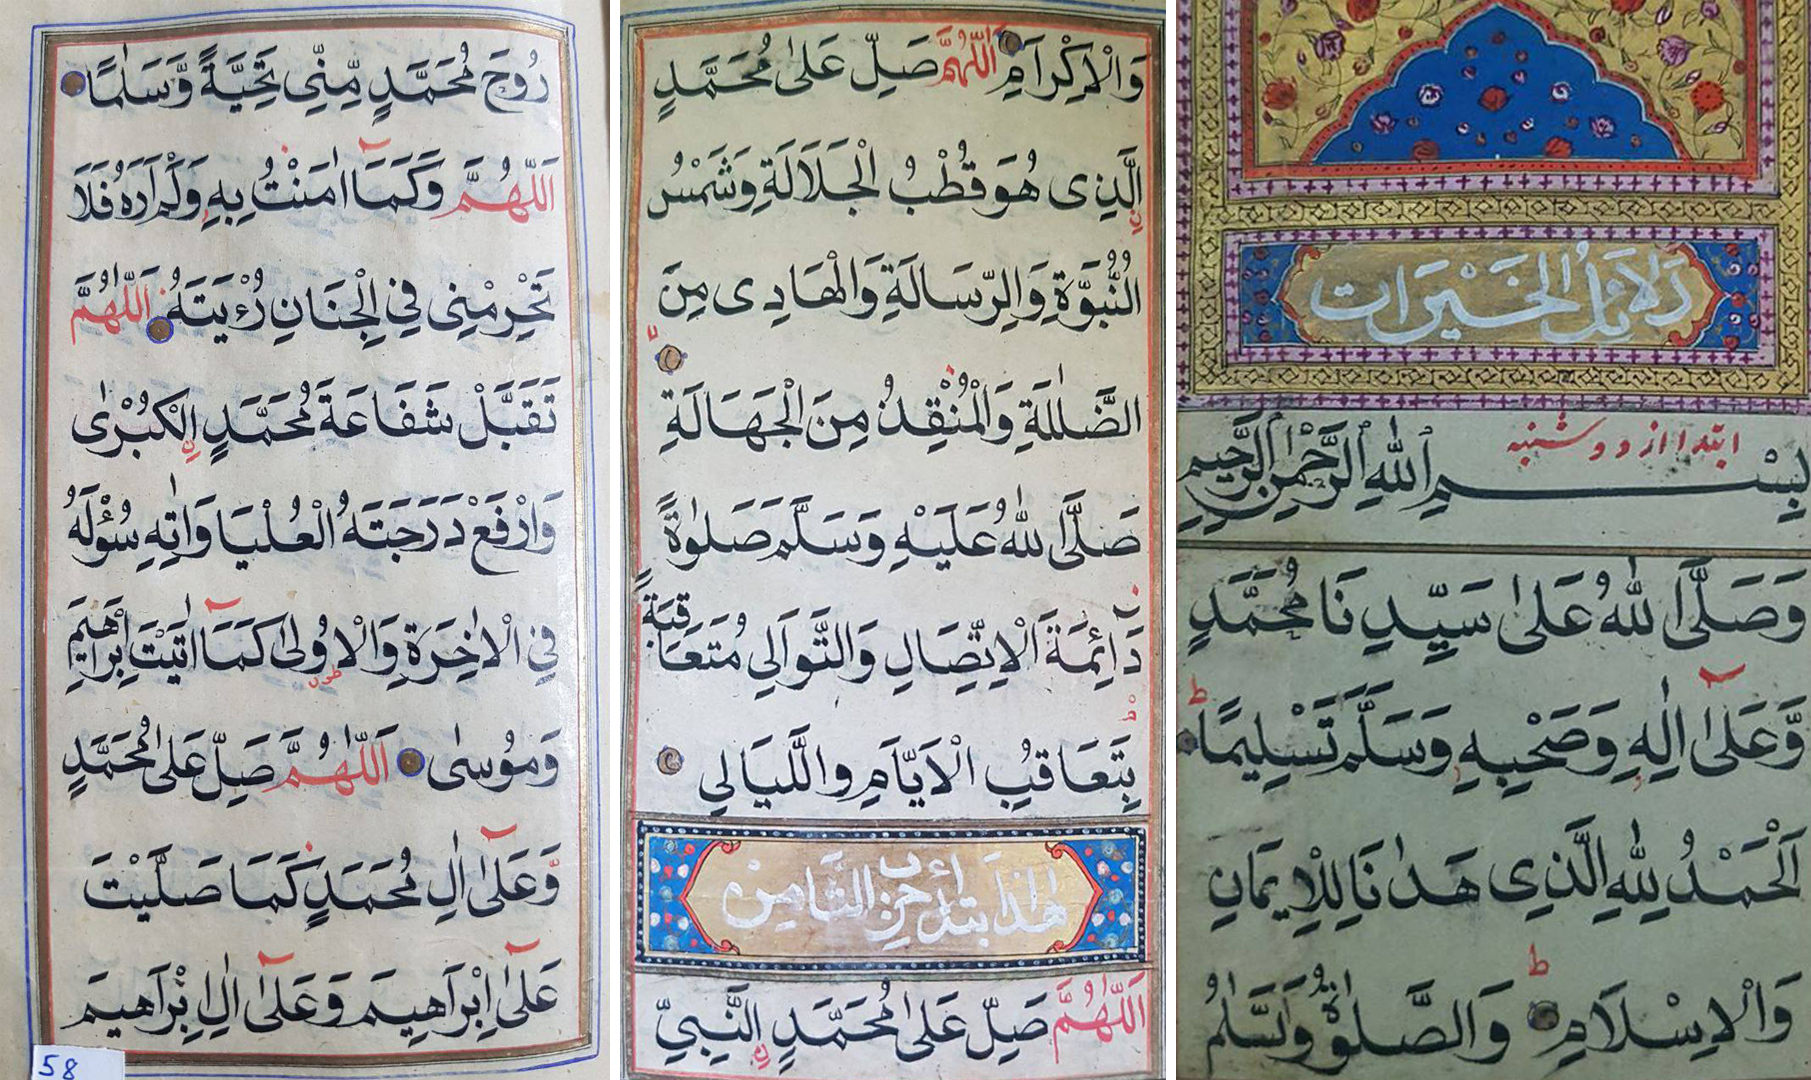 رُوحَ مُحَمَّدٍ مِّنِّى تَحِيَّةً وَّسَلٰمًا
اَللّٰهُمَّ وَكَمَآ اٰمَنْتُ بِهٖ وَلَمْ اَرَهُ فَلَا
تَحْرِمْنِى فِى الْجِنَانِ رُءْيَتَهُ اَللّٰهُمَّ
تَقَبَّلْ شَفَاعَةَ مُحَمَّدٍ الْكُبْرٰى
وَارْفَعْ دَرَجَتَهُ الْعُلْيَا وَاٰتِهٖ سُؤْلَهُ
فِى الْاٰخِرَةِ وَالْاُوْلٰى كَمَآ اٰتَيْتَ اِبْرَاهِيْمَ
وَمُوْسٰى اَللّٰهُمَّ صَلِّ عَلٰى مُحَمَّدٍ
وَّعَلٰٓى اٰلِ مُحَمَّدٍ كَمَا صَلَّيْتَ
عَلٰٓى اِبْرَاهِيْمَ وَعَلٰٓى اٰلِ اِبْرَاهِيْمَ
58
وَالْاِكْرَامِ اَللّٰهُمَّ صَلِّ عَلٰى مُحَمَّدٍ
الَّذِى هُوَ قُطْبُ الْجَلَالَةِ وَشَمْسُ
النُّبُوَّةِ وَالرِّسَالَةِ وَالْهَادِى مِنَ
الضَّلٰلَةِ وَالْمُنْقِذُ مِنَ الْجَهَالَةِ
صَلَّى اللّٰهُ عَلَيْهِ وَسَلَّمَ صَلٰوةً
دَآئِمَةَ الْاِتِّصَالِ وَالتَّوَالِى مُتَعَاقِبَةً
بِتَعَاقُبِ الْاَيَّامِ وَاللَّيَالِى
هٰذا ابتداء حزب الثامن
اَللّٰهُمَّ صَلِّ عَلٰى مُحَمَّدٍ النَّبِيِّ
دَلَائلُ الْخَيْرَات
ابتدا از دوشنبه
بِسْمِ اللّٰهِ الرَّحْمٰنِ الرَّحِيْمِ
وَصَلَّى اللّٰهُ عَلٰى سَيِّدِنَا مُحَمَّدٍ
وَّعَلٰٓى اٰلِهٖ وَصَحْبِهٖ وَسَلَّمَ تَسْلِيْمًا ط
اَلْحَمْدُ لِلّٰهِ الَّذِى هَدٰنَا لِلْاِيْمَانِ
وَالْاِسْلَامِ ط وَالصَّلٰوةُ وَالسَّلٰمُ